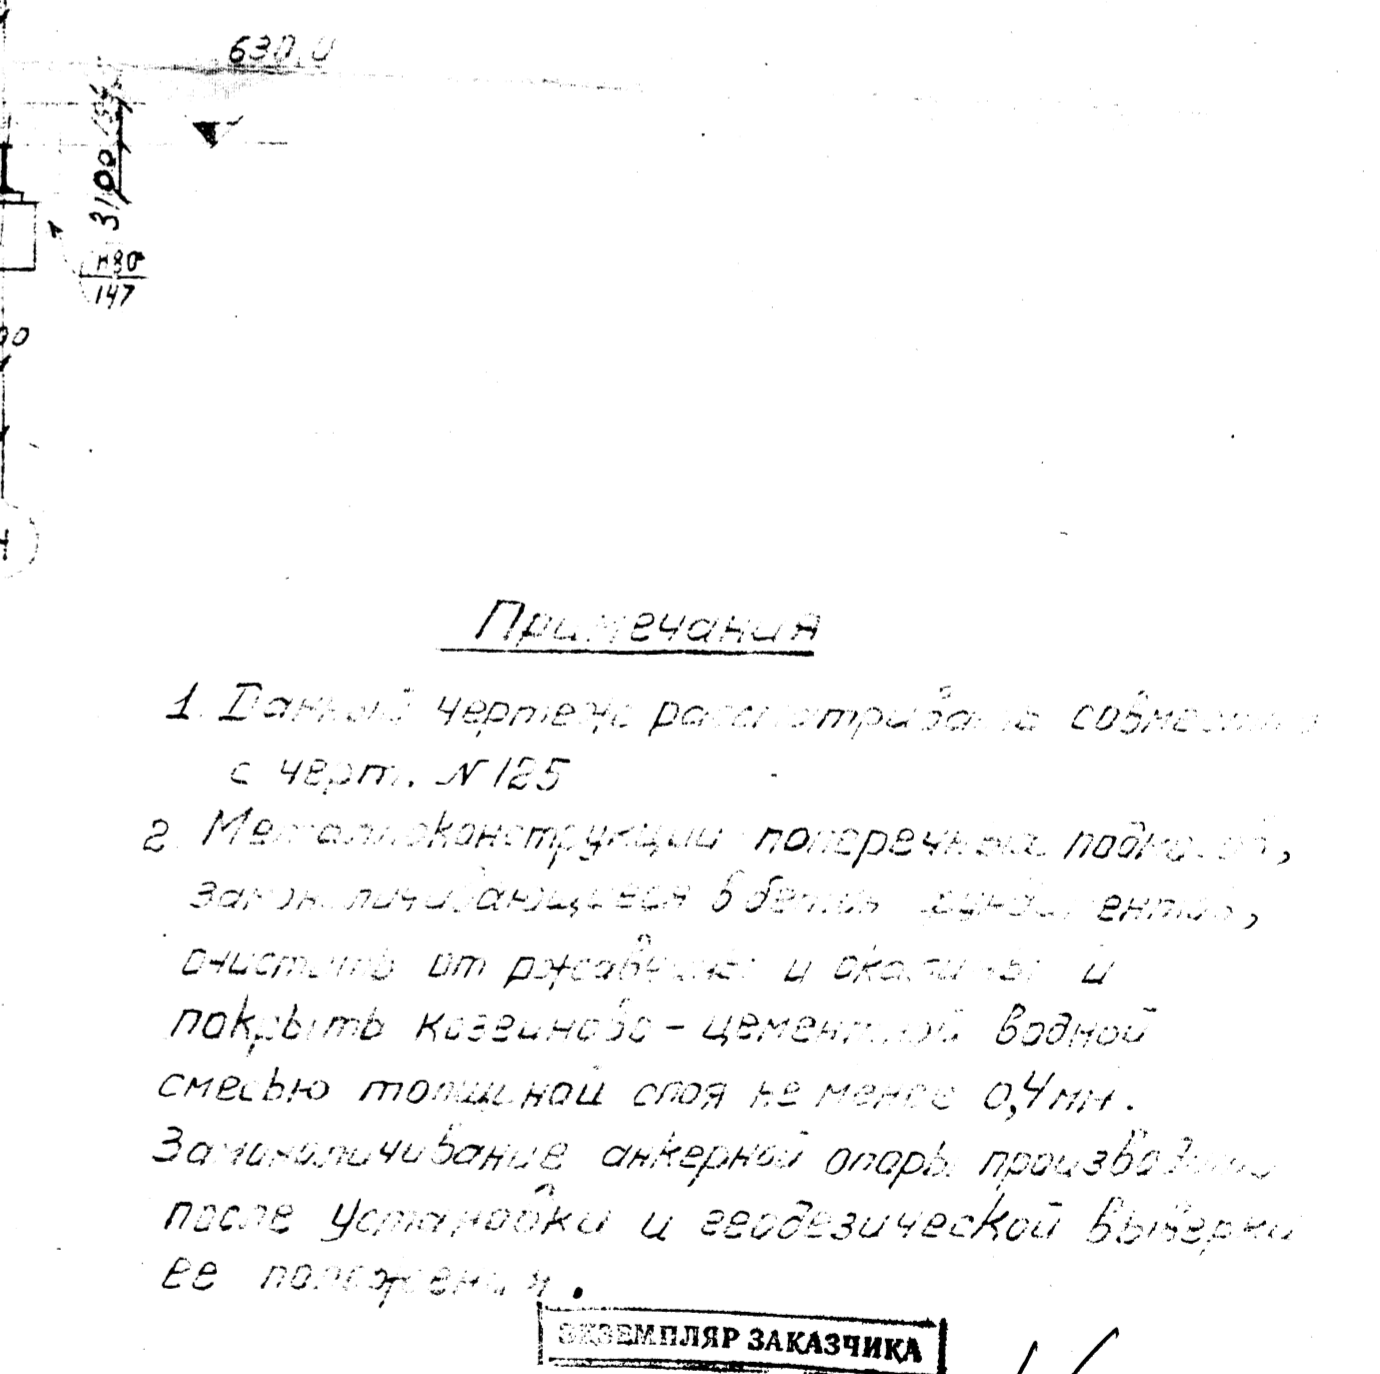 630,0
3100
н80
147
Примечания
1. Данный чертеж рассматривать совместно
с черт. N 125
2. Металлоконструкции поперечных подмостей,
замоноличивающиеся в бетон фундаментов,
очистить от ржавчины и окалины и
покрыть козеиново-цементной водной
смесью толщиной слоя не менее 0,4 мм.
Замоноличивание анкерной опоры производить
после установки и геодезической выверки
ее положения.
ЭКЗЕМПЛЯР ЗАКАЗЧИКА